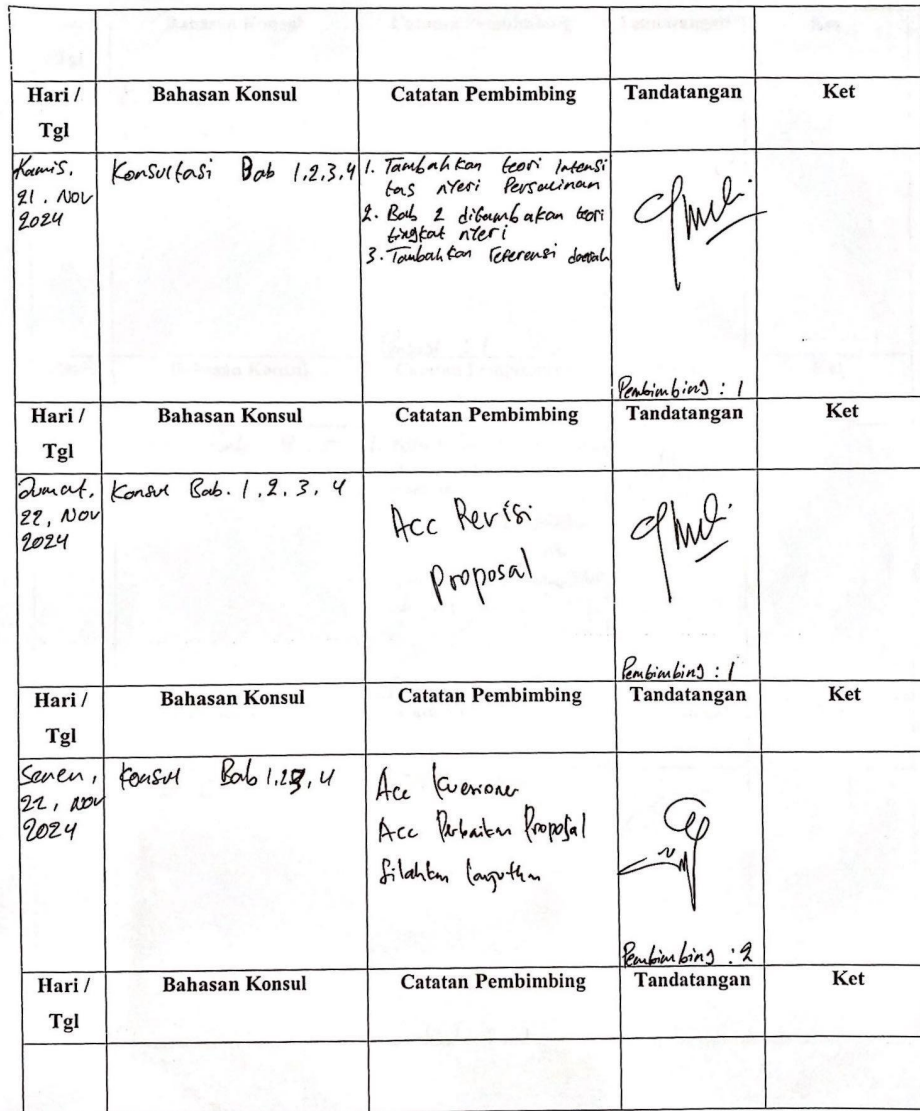 Hari / Bahasan Konsul Catatan Pembimbing Tandatangan Ket
Tgl
Kamis, Konsultasi Bab 1,2,3,4 1. Tambahkan teori Intensi
21. Nov tas nyeri Persalinan
2024 2. Bab 2 ditambakan teori
tingkat nyeri
3. Tambahkan referensi daerah
Pembimbing : 1
Hari / Bahasan Konsul Catatan Pembimbing Tandatangan Ket
Tgl
Jumat, Konsul Bab. 1, 2, 3, 4
22, Nov Acc Revisi
2024 Proposal
Pembimbing : 1
Hari / Bahasan Konsul Catatan Pembimbing Tandatangan Ket
Tgl
Senen, Konsul Bab 1,2,3, 4 Acc Kuesioner
22, Nov Acc Perbaikan Proposal
2024 Silahkan lanjutkan
Pembimbing : 2
Hari / Bahasan Konsul Catatan Pembimbing Tandatangan Ket
Tgl